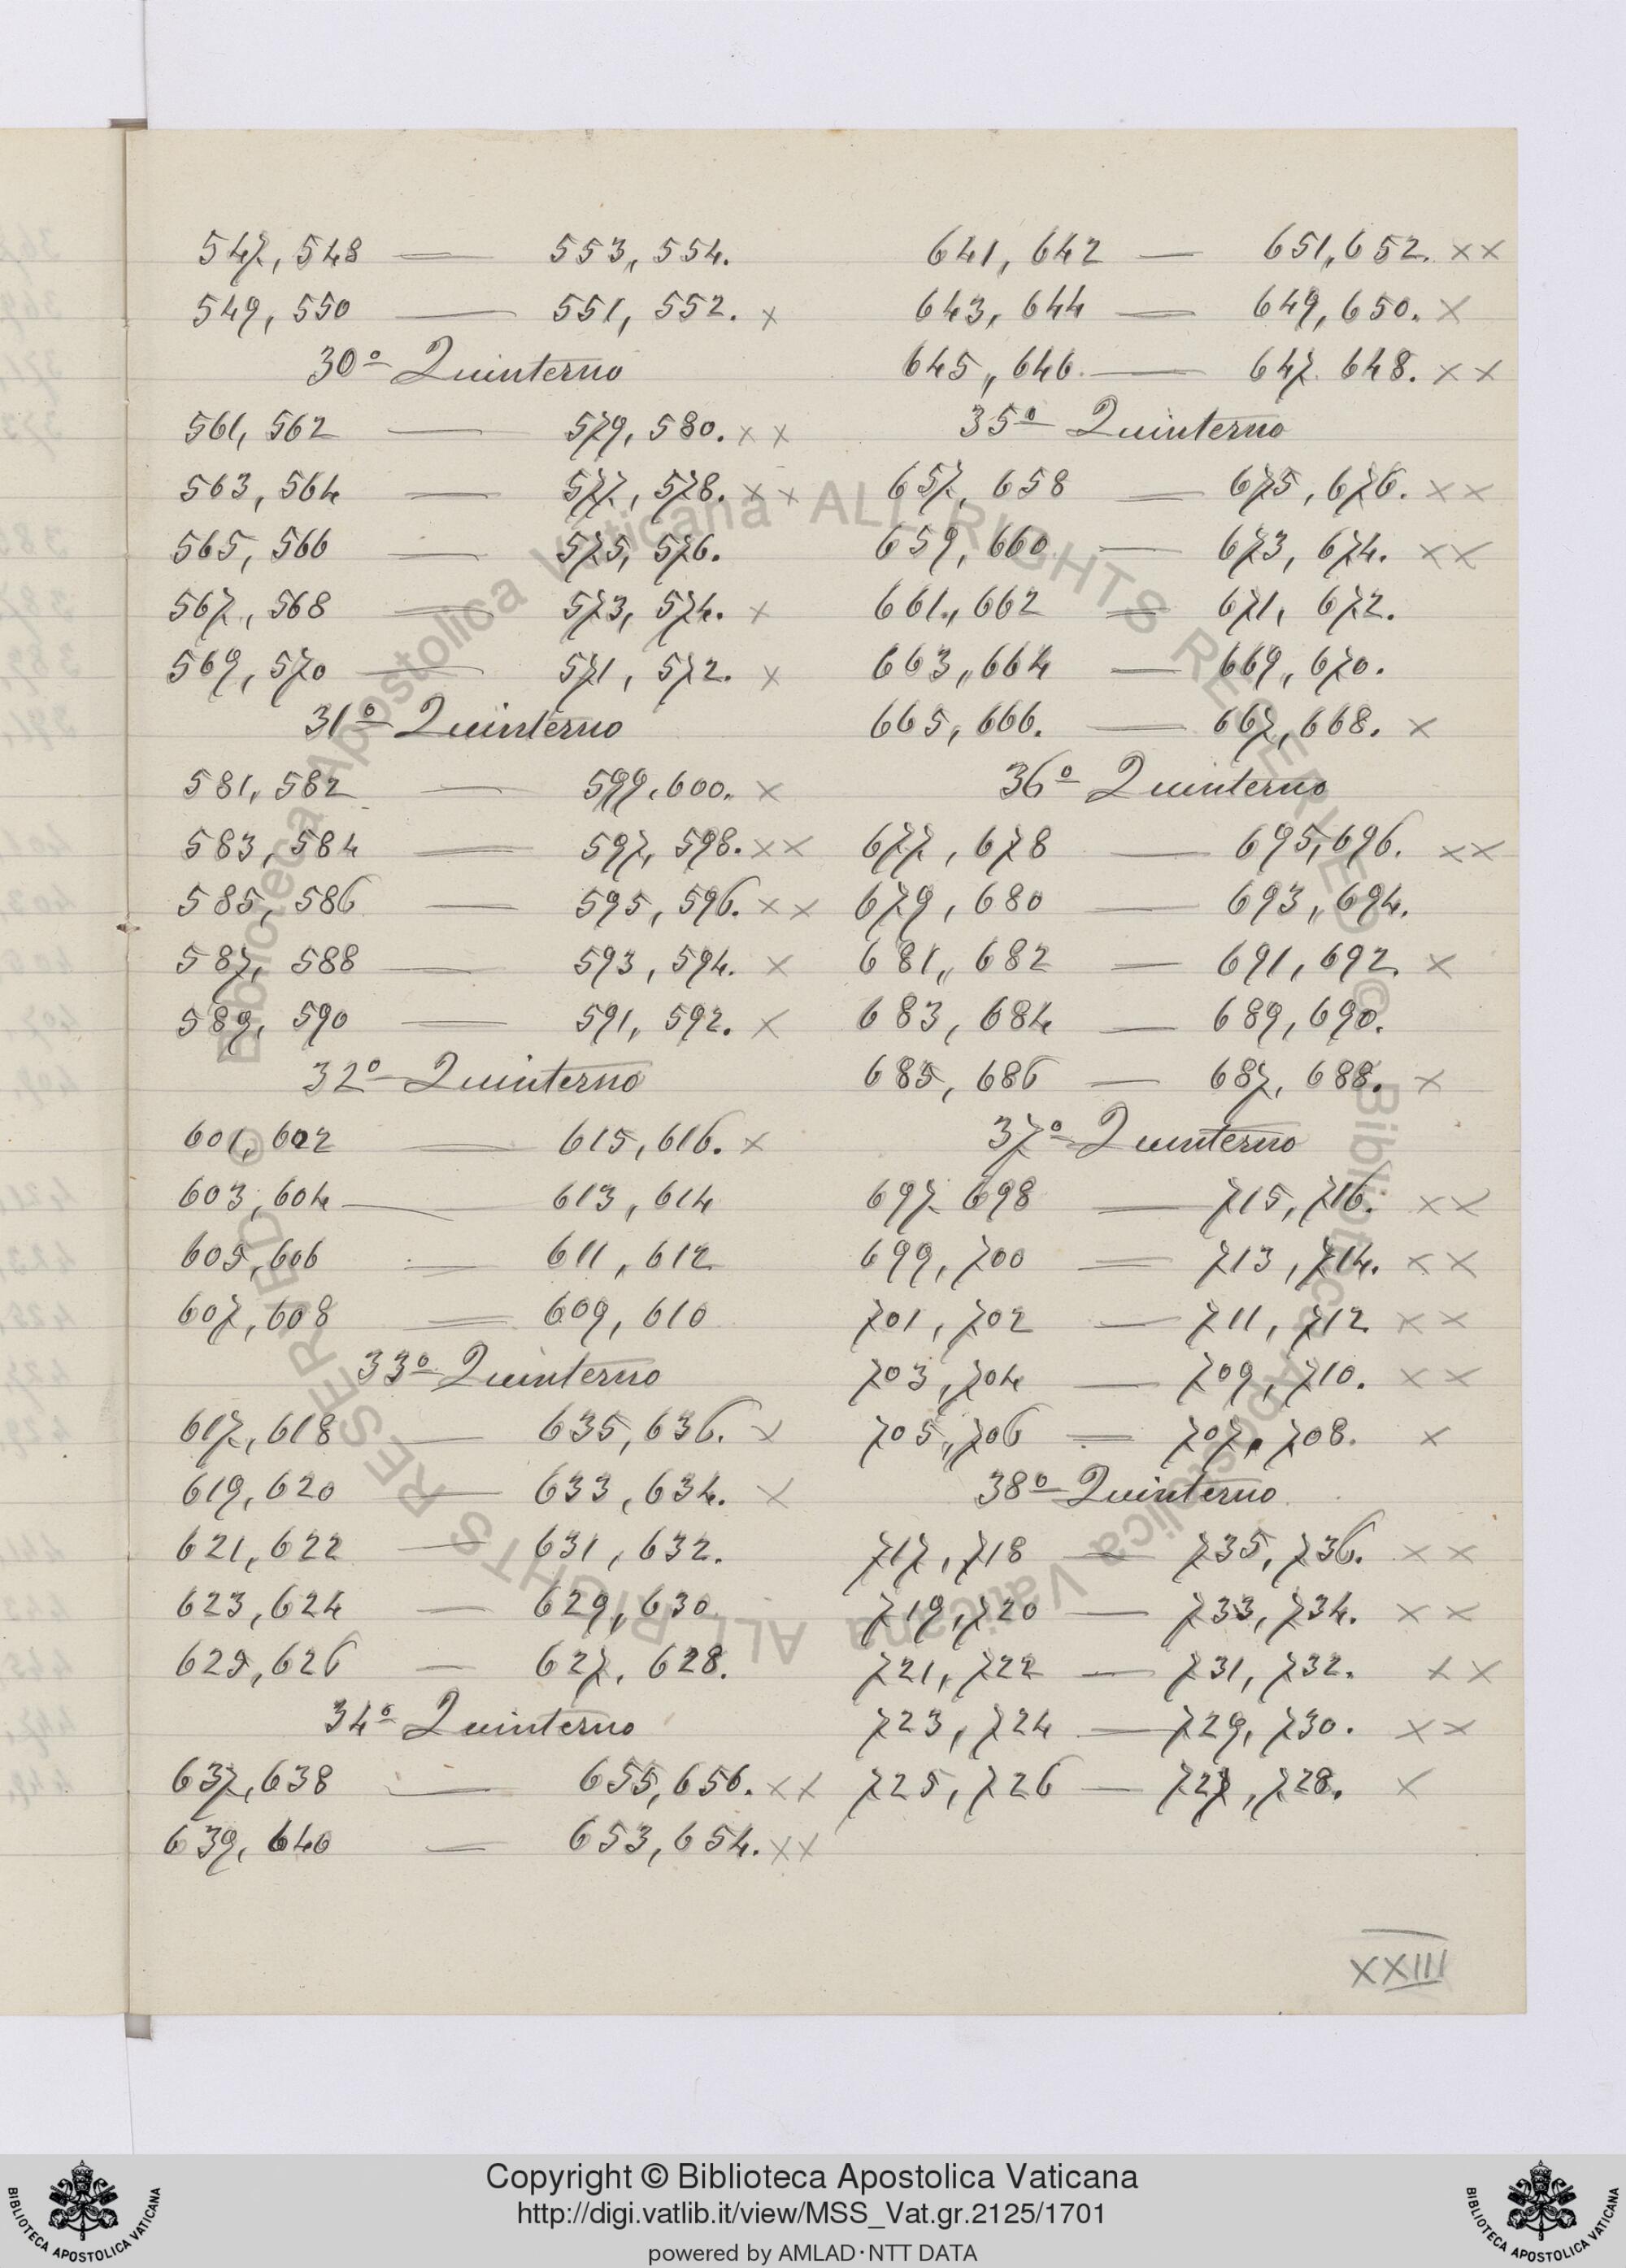 547, 548 — 553, 554.
549, 550 — 551, 552. x
30º Quinterno
561, 562 — 579, 580. x x
563, 564 — 577, 578. x x
565, 566 — 575, 576.
567, 568 — 573, 574. x
569, 570 — 571, 572. x
31º Quinterno
581, 582 — 599, 600. x
583, 584 — 597, 598. x x
585, 586 — 595, 596. x x
587, 588 — 593, 594. x
589, 590 — 591, 592. x
32º Quinterno
601, 602 — 615, 616. x
603, 604 — 613, 614
605, 606 — 611, 612
607, 608 — 609, 610
33º Quinterno
617, 618 — 635, 636. x
619, 620 — 633, 634. x
621, 622 — 631, 632.
623, 624 — 629, 630
625, 626 — 627, 628.
34º Quinterno
637, 638 — 655, 656. x x
639, 640 — 653, 654. x x
641, 642 — 651, 652. x x
643, 644 — 649, 650. x
645, 646. — 647. 648. x x
35º Quinterno
657, 658 — 675, 676. x x
659, 660 — 673, 674. x x
661, 662 — 671, 672.
663, 664 — 669, 670.
665, 666. — 667, 668. x
36º Quinterno
677, 678 — 695, 696. x x
679, 680 — 693, 694.
681, 682 — 691, 692. x
683, 684 — 689, 690.
685, 686 — 687, 688. x
37º Quinterno
697. 698 — 715, 716. x x
699, 700 — 713, 714. x x
701, 702 — 711, 712 x x
703, 704 — 709, 710. x x
705, 706 — 707, 708. x
38º Quinterno
717, 718 — 735, 736. x x
719, 720 — 733, 734. x x
721, 722 — 731, 732. x x
723, 724 — 729, 730. x x
725, 726 — 727, 728. x
XXIII
© Biblioteca Apostolica Vaticana ALL RIGHTS RESERVED © Biblioteca Apostolica Vaticana ALL RIGHTS RESERVED
Copyright © Biblioteca Apostolica Vaticana
http://digi.vatlib.it/view/MSS_Vat.gr.2125/1701
powered by AMLAD·NTT DATA
BIBLIOTECA APOSTOLICA VATICANA
BIBLIOTECA APOSTOLICA VATICANA